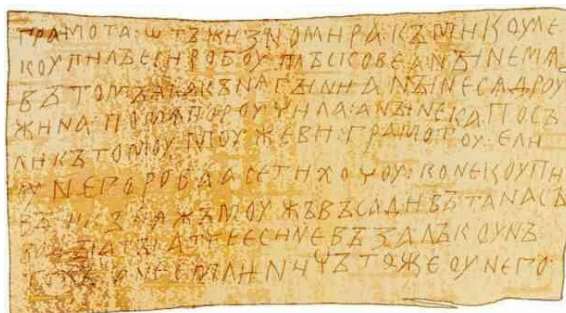 ГРАМОТА:ѠТЪЖИЗНОМИРА:КЪМИКОУЛЕ
КОУПИЛЪЕСИРОБОУПЛЪСКОВЕАНЪІНЕМѦ
ВЪТОМЪѦЛАКЪНѦГЪІНИАНЪІНЕСѦДРОУ
ЖИНА:ПОМѦПОРОУЧИЛА:АНЪІНЕКА:ПОСЪ
ЛИКЪТОМОУ:МОУЖЕВИ:ГРАМОТОУ:ЕЛИ
ОУНЕГОРОБААСЕТИХОЧОУ:КОНЕКОУПИ
ВЪ:ИКЪНѦЖЪМОУЖЪВЪСАДИВЪТАНАСЪ
ВОДЪІАТЪІАТЧЕЕСИНЕВЪЗАЛЪКОУНЪ
ТЕХЪ:АНЕЕМЛИ:НИЧЪТОЖЕОУНЕГО